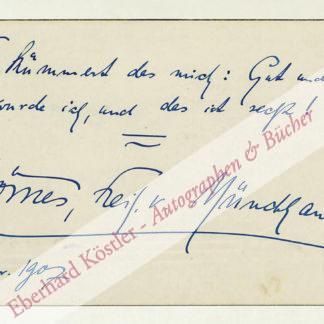 kümmert das mich: Gut und
wurde ich, und das ist recht!
Börries, Frh. v. Münchhau
Apr. 1909
Eberhard Köstler - Autographen & Bücher